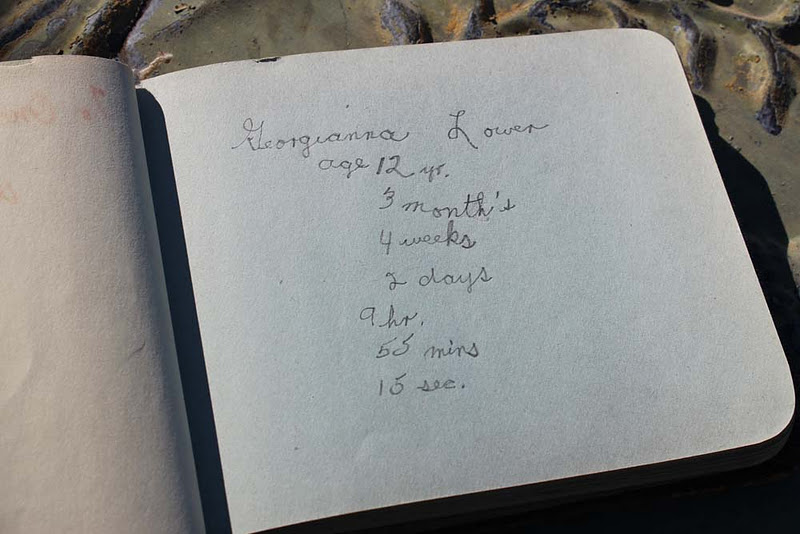 Georgianna Lower
age 12 yr.
3 month's
4 weeks
2 days
9 hr.
55 mins
15 sec.